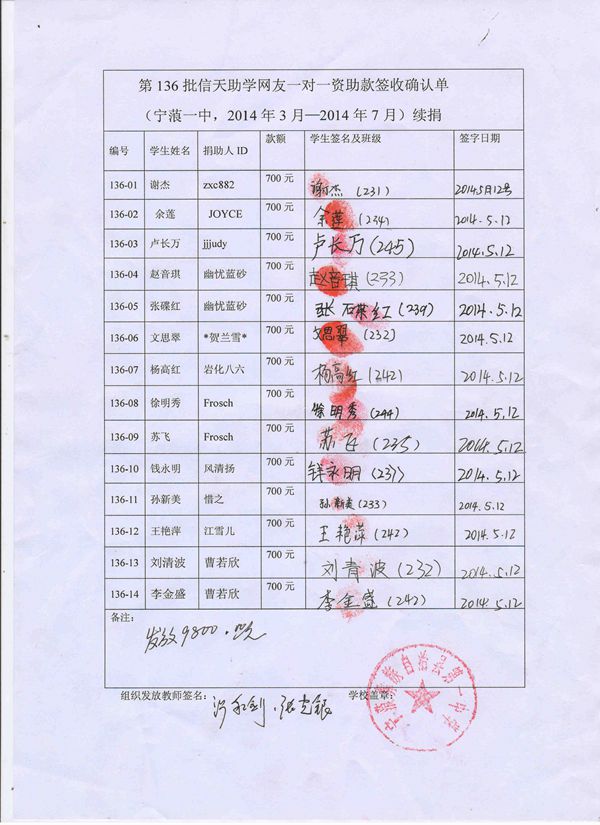 第 136 批信天助学网友一对一资助款签收确认单
(宁蒗一中，2014 年 3 月—2014 年 7 月) 续捐
编号 学生姓名 捐助人 ID 款额 学生签名及班级 签字日期
136-01 谢杰 zxc882 700 元 谢杰 (231) 2014年5月12号
136-02 余莲 JOYCE 700 元 余莲 (234) 2014.5.12
136-03 卢长万 jjjudy 700 元 卢长万 (245) 2014.5.12
136-04 赵音琪 幽忧蓝砂 700 元 赵音琪 (233) 2014.5.12
136-05 张碟红 幽忧蓝砂 700 元 张碟红 (239) 2014.5.12
136-06 文思翠 *贺兰雪* 700 元 文思翠 (232) 2014.5.12
136-07 杨高红 岩化八六 700 元 杨高红 (242) 2014.5.12
136-08 徐明秀 Frosch 700 元 徐明秀 (244) 2014.5.12
136-09 苏飞 Frosch 700 元 苏飞 (235) 2014.5.12
136-10 钱永明 风清扬 700 元 钱永明 (237) 2014.5.12
136-11 孙新美 惜之 700 元 孙新美 (233) 2014.5.12
136-12 王艳萍 江雪儿 700 元 王艳萍 (242) 2014.5.12
136-13 刘清波 曹若欣 700 元 刘青波 (232) 2014.5.12
136-14 李金盛 曹若欣 700 元 李金盛 (242) 2014.5.12
备注：
发放9800.
组织发放教师签名： 学校盖章：
宁蒗彝族自治县第一中学